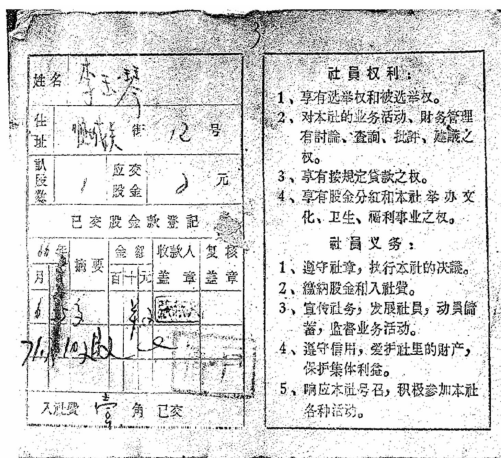 姓名 李玉琴
住址 街 12 号
认股数 1 应交股金 2 元
已交股金款登记
66 年 金额 收款人 复核
月 摘要 百十元 盖章 盖章
6
入社费 壹 角 已交
社员权利：
1、享有选举权和被选举权。
2、对本社的业务活动、财务管理
有討論、查詢、批評、建議之
权。
3、享有按规定貸款之权。
4、享有股金分紅和本社举办文
化、卫生、福利事业之权。
社员义务：
1、遵守社章，执行本社的决議。
2、缴納股金和入社費。
3、宣传社务，发展社員，动員儲
蓄，监督业务活动。
4、遵守信用，爱护社里的财产，
保护集体利益。
5、响应本社号召，积极参加本社
各种活动。